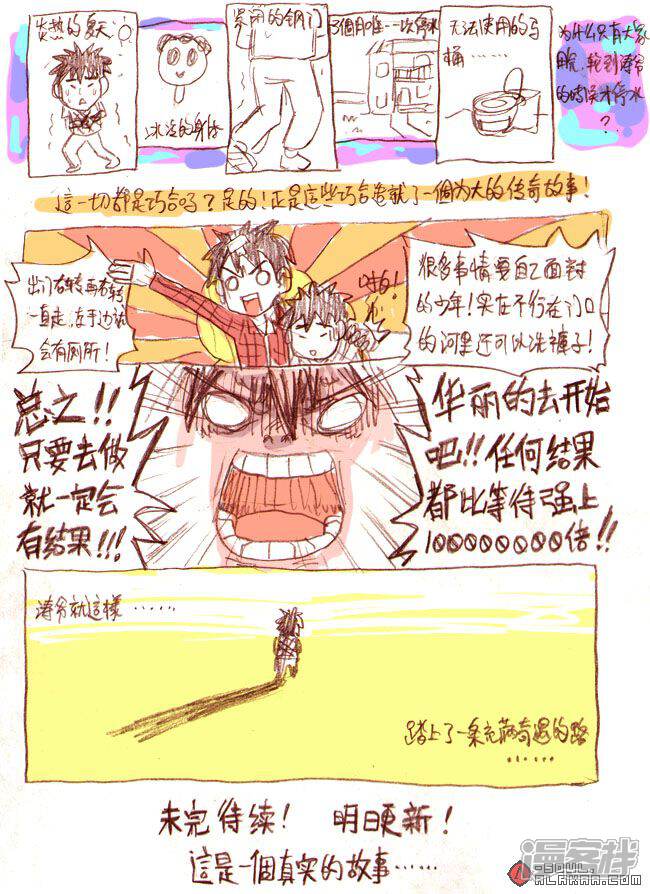 炎热的夏天
冰冷的身体
紧闭的钢门
3個月唯一一次停水
无法使用的马
桶……
为什么只有大家
用完,轮到涛爷
的时候才停水
?
這一切都是巧合吗?是的!正是這些巧合造就了一個为大的传奇故事!
出门右转再右转
一直走,左手边就
会有厕所!
啪!
很多事情要自己面对
的少年!实在不行在门口
的河里还可以洗裤子!
总之!!
只要去做
就一定会
有结果!!!
华丽的去开始
吧!!任何结果
都比等待强上
1000000000倍!!
涛爷就這樣……
踏上了一条充满奇遇的路
……
未完待续! 明日更新!
這是一個真实的故事……
漫客栈